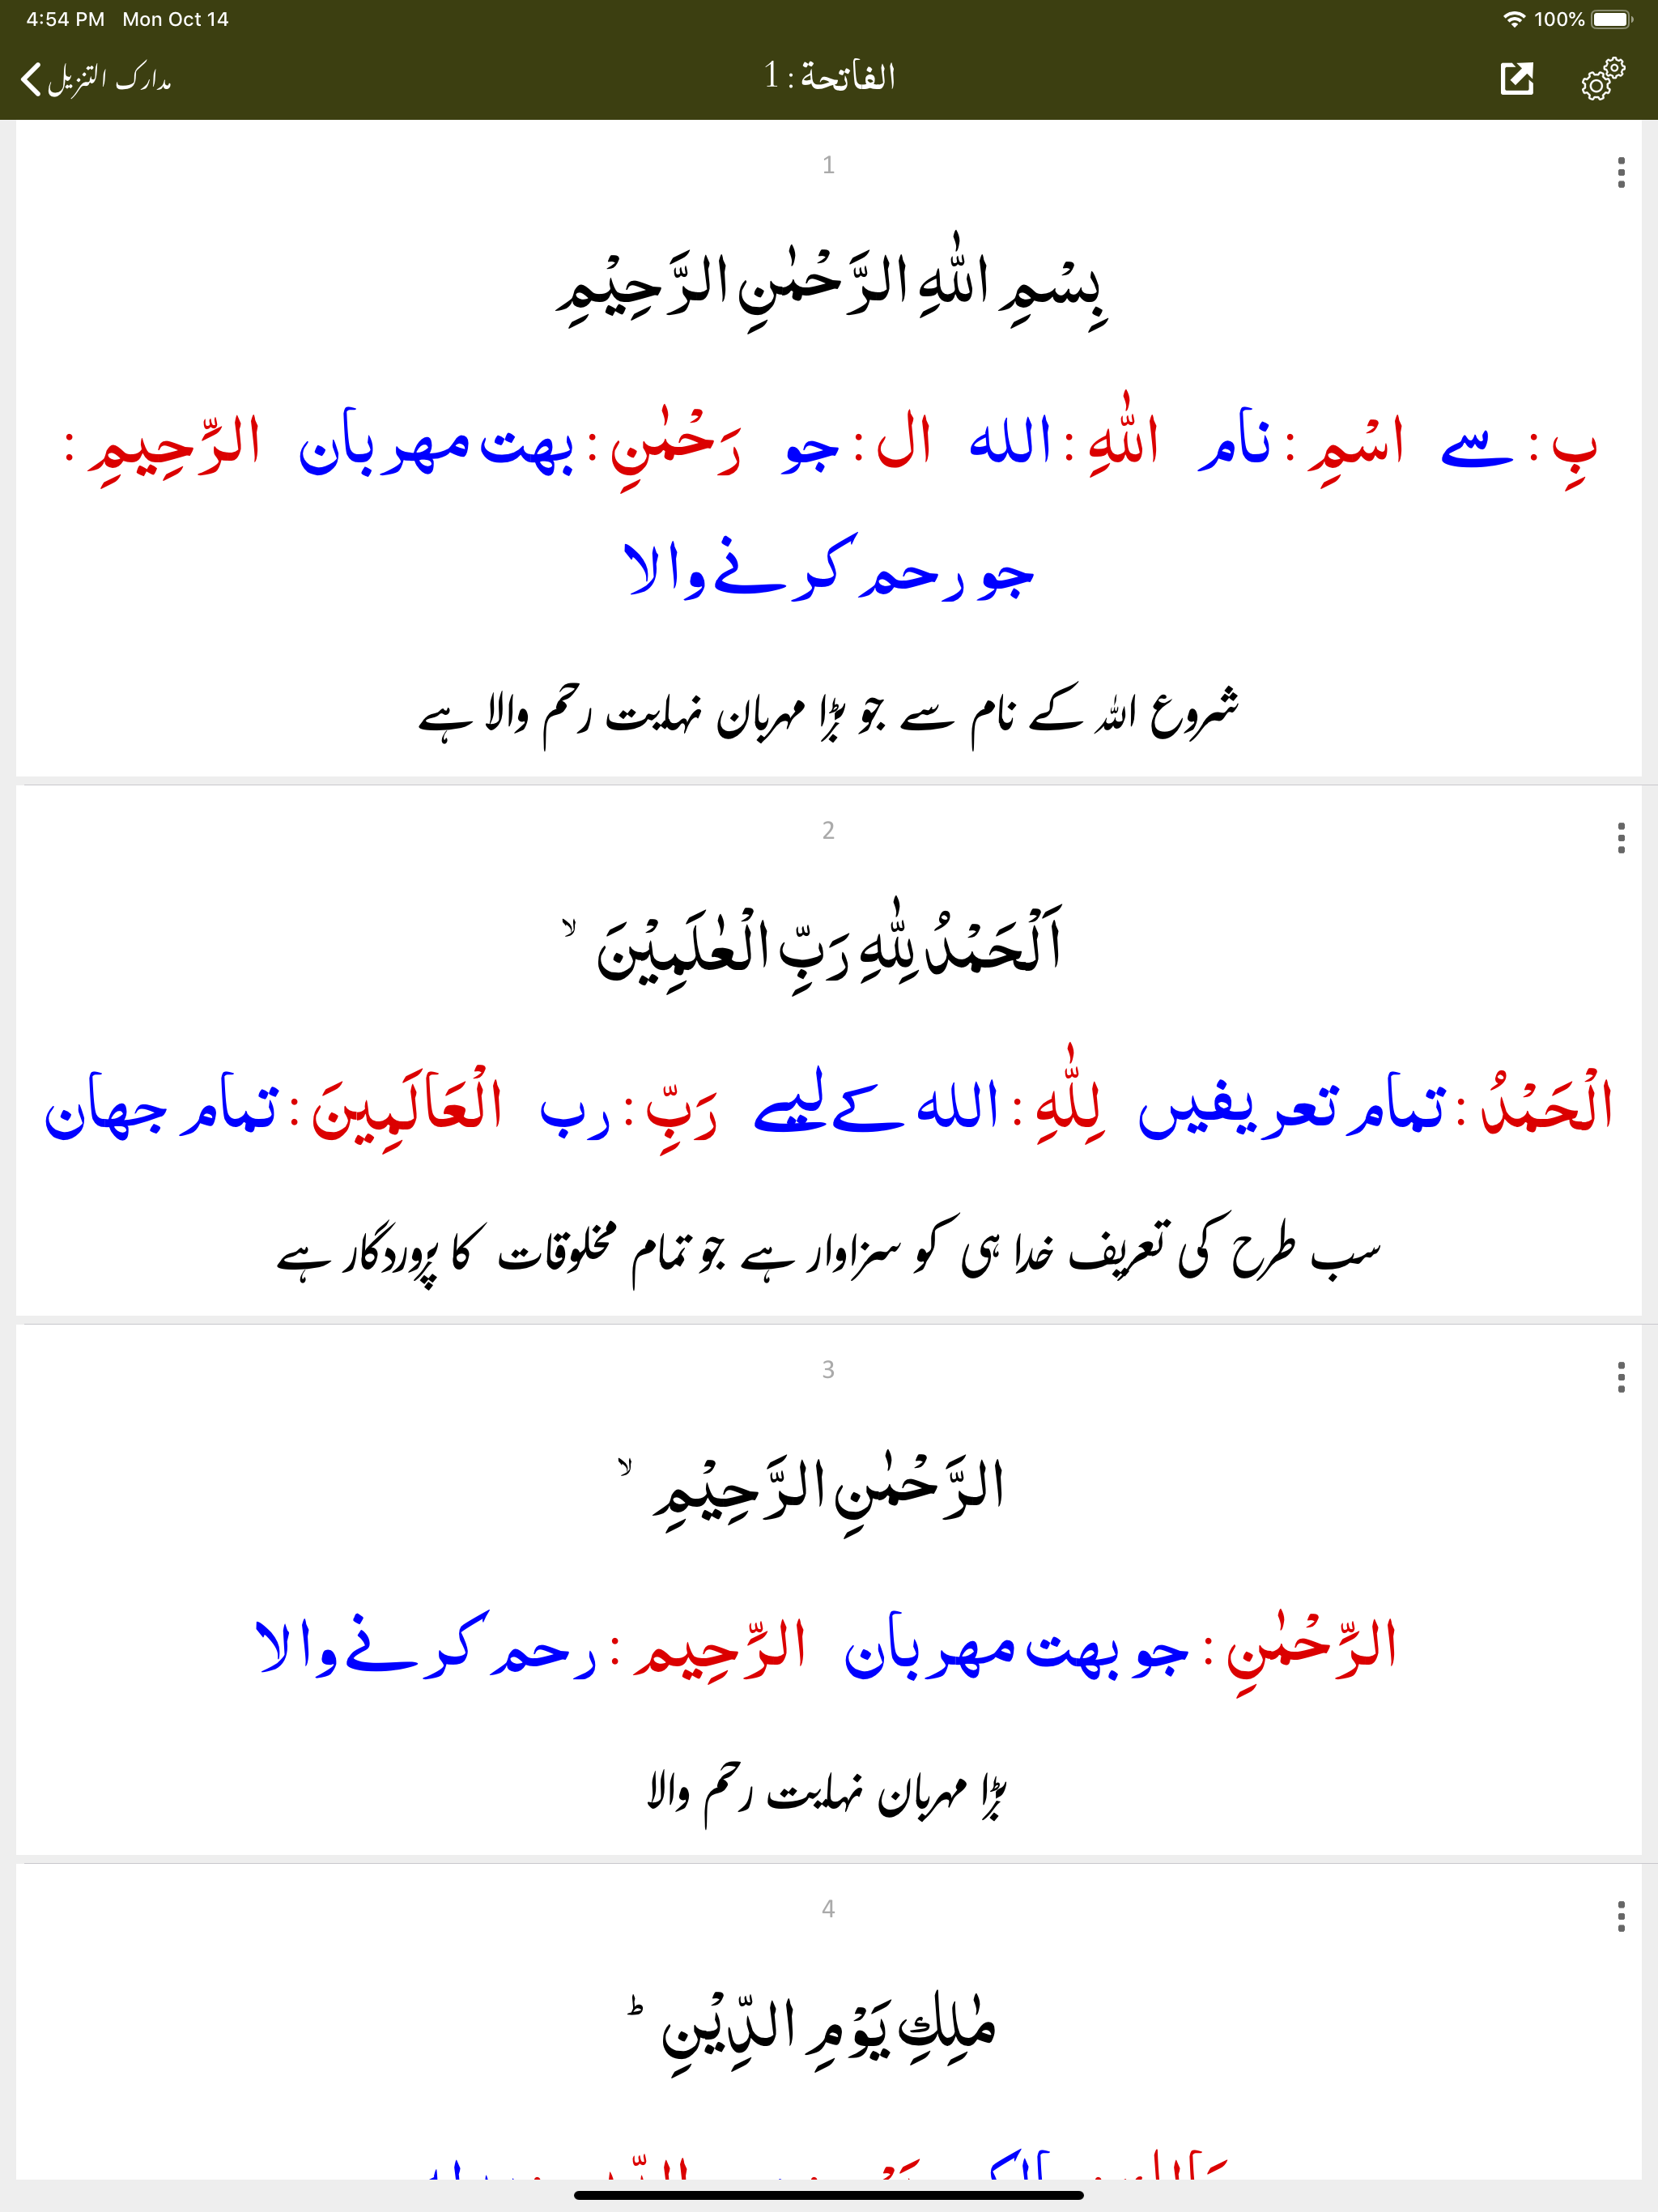 4:54 PM Mon Oct 14 100%
مدارک التنزیل الفاتحة : 1
1
بِسْمِ اللّٰهِ الرَّحْمٰنِ الرَّحِيْمِ
بِ : سے اسْمِ : نام اللّٰهِ : الله ال : جو رَحْمٰنِ : بهت مهربان الرِّحِيمِ :
جو رحم کرنے والا
شروع اللہ کے نام سے جو بڑا مہربان نہایت رحم والا ہے
2
اَلْحَمْدُ لِلّٰهِ رَبِّ الْعٰلَمِيْنَ ۙ
الْحَمْدُ : تمام تعریفیں لِلّٰهِ : الله کے لیے رَبِّ : رب الْعَالَمِينَ : تمام جهان
سب طرح کی تعریف خدا ہی کو سزاوار ہے جو تمام مخلوقات کا پروردگار ہے
3
الرَّحْمٰنِ الرَّحِيْمِ ۙ
الرِّحْمٰنِ : جو بهت مهربان الرِّحِيم : رحم کرنے والا
بڑا مہربان نہایت رحم والا
4
مٰلِكِ يَوْمِ الدِّيْنِ ؕ